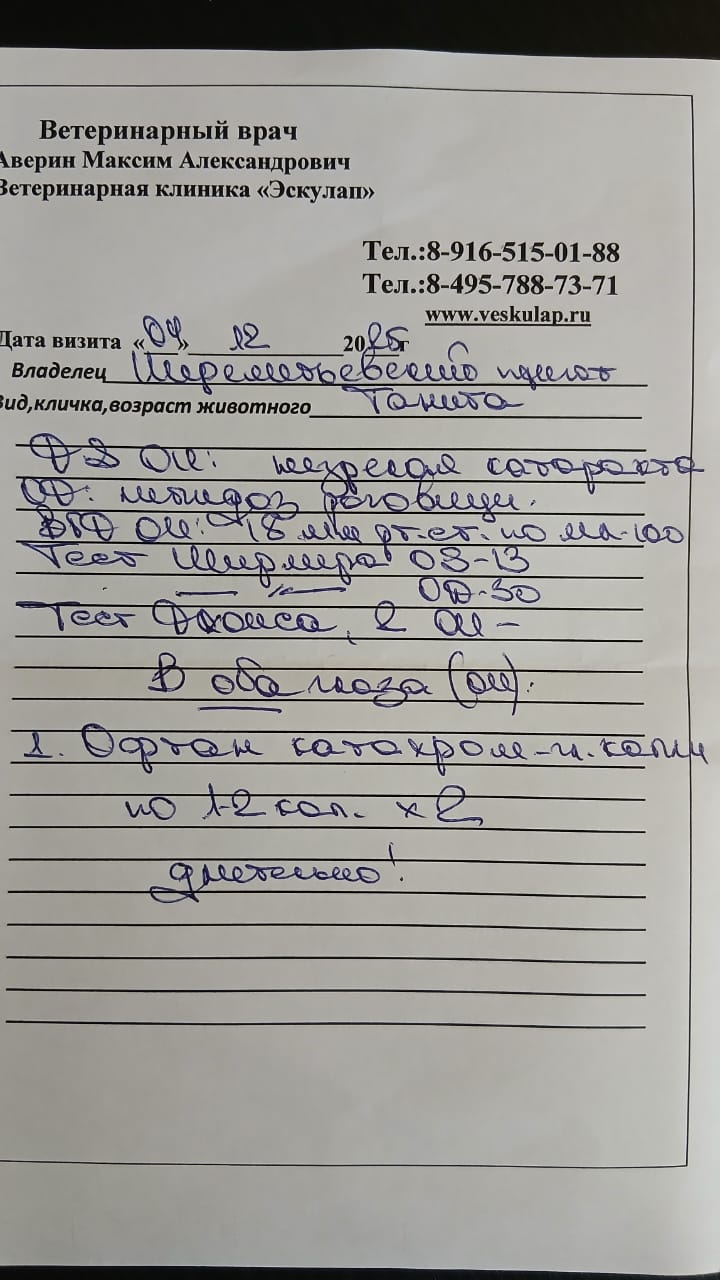 Ветеринарный врач
Аверин Максим Александрович
Ветеринарная клиника «Эскулап»
Тел.:8-916-515-01-88
Тел.:8-495-788-73-71
www.veskulap.ru
Дата визита «04» 12 2025г
Владелец Шереметьевский приют
Вид,кличка,возраст животного Танита
ДЗ OU: незрелая катаракта
ОD: липидоз роговицы.
ВГД OU: 18 мм рт.ст. по
Тест Ширмера OS-13
OD-30
Тест Джонса, 2 OU –
В оба глаза (OU):
1. Офтан катахром-гл.капли
по 1-2 кап. x 2
длительно!